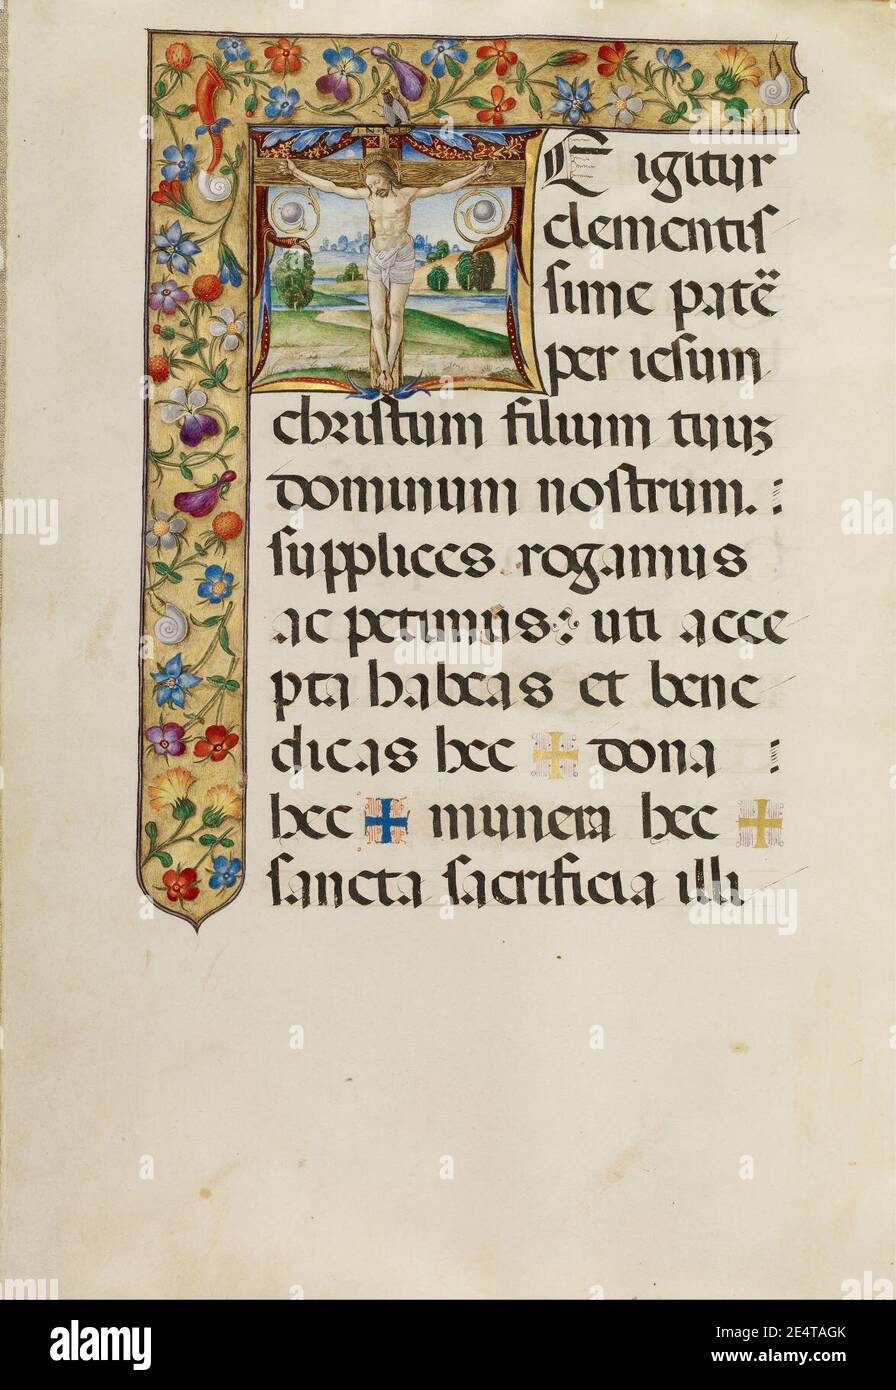 I·N·R·I
E igitur
clementis
sime patē
per iesum
christum filium tuuʒ
dominum nostrum. :
supplices rogamus
ac petimus: uti acce
pta habeas et bene
dicas hec ✠ dona :
hec ✠ munera hec ✠
sancta sacrificia illi
alamy
alamy
Image ID: 2E4TAGK
www.alamy.com